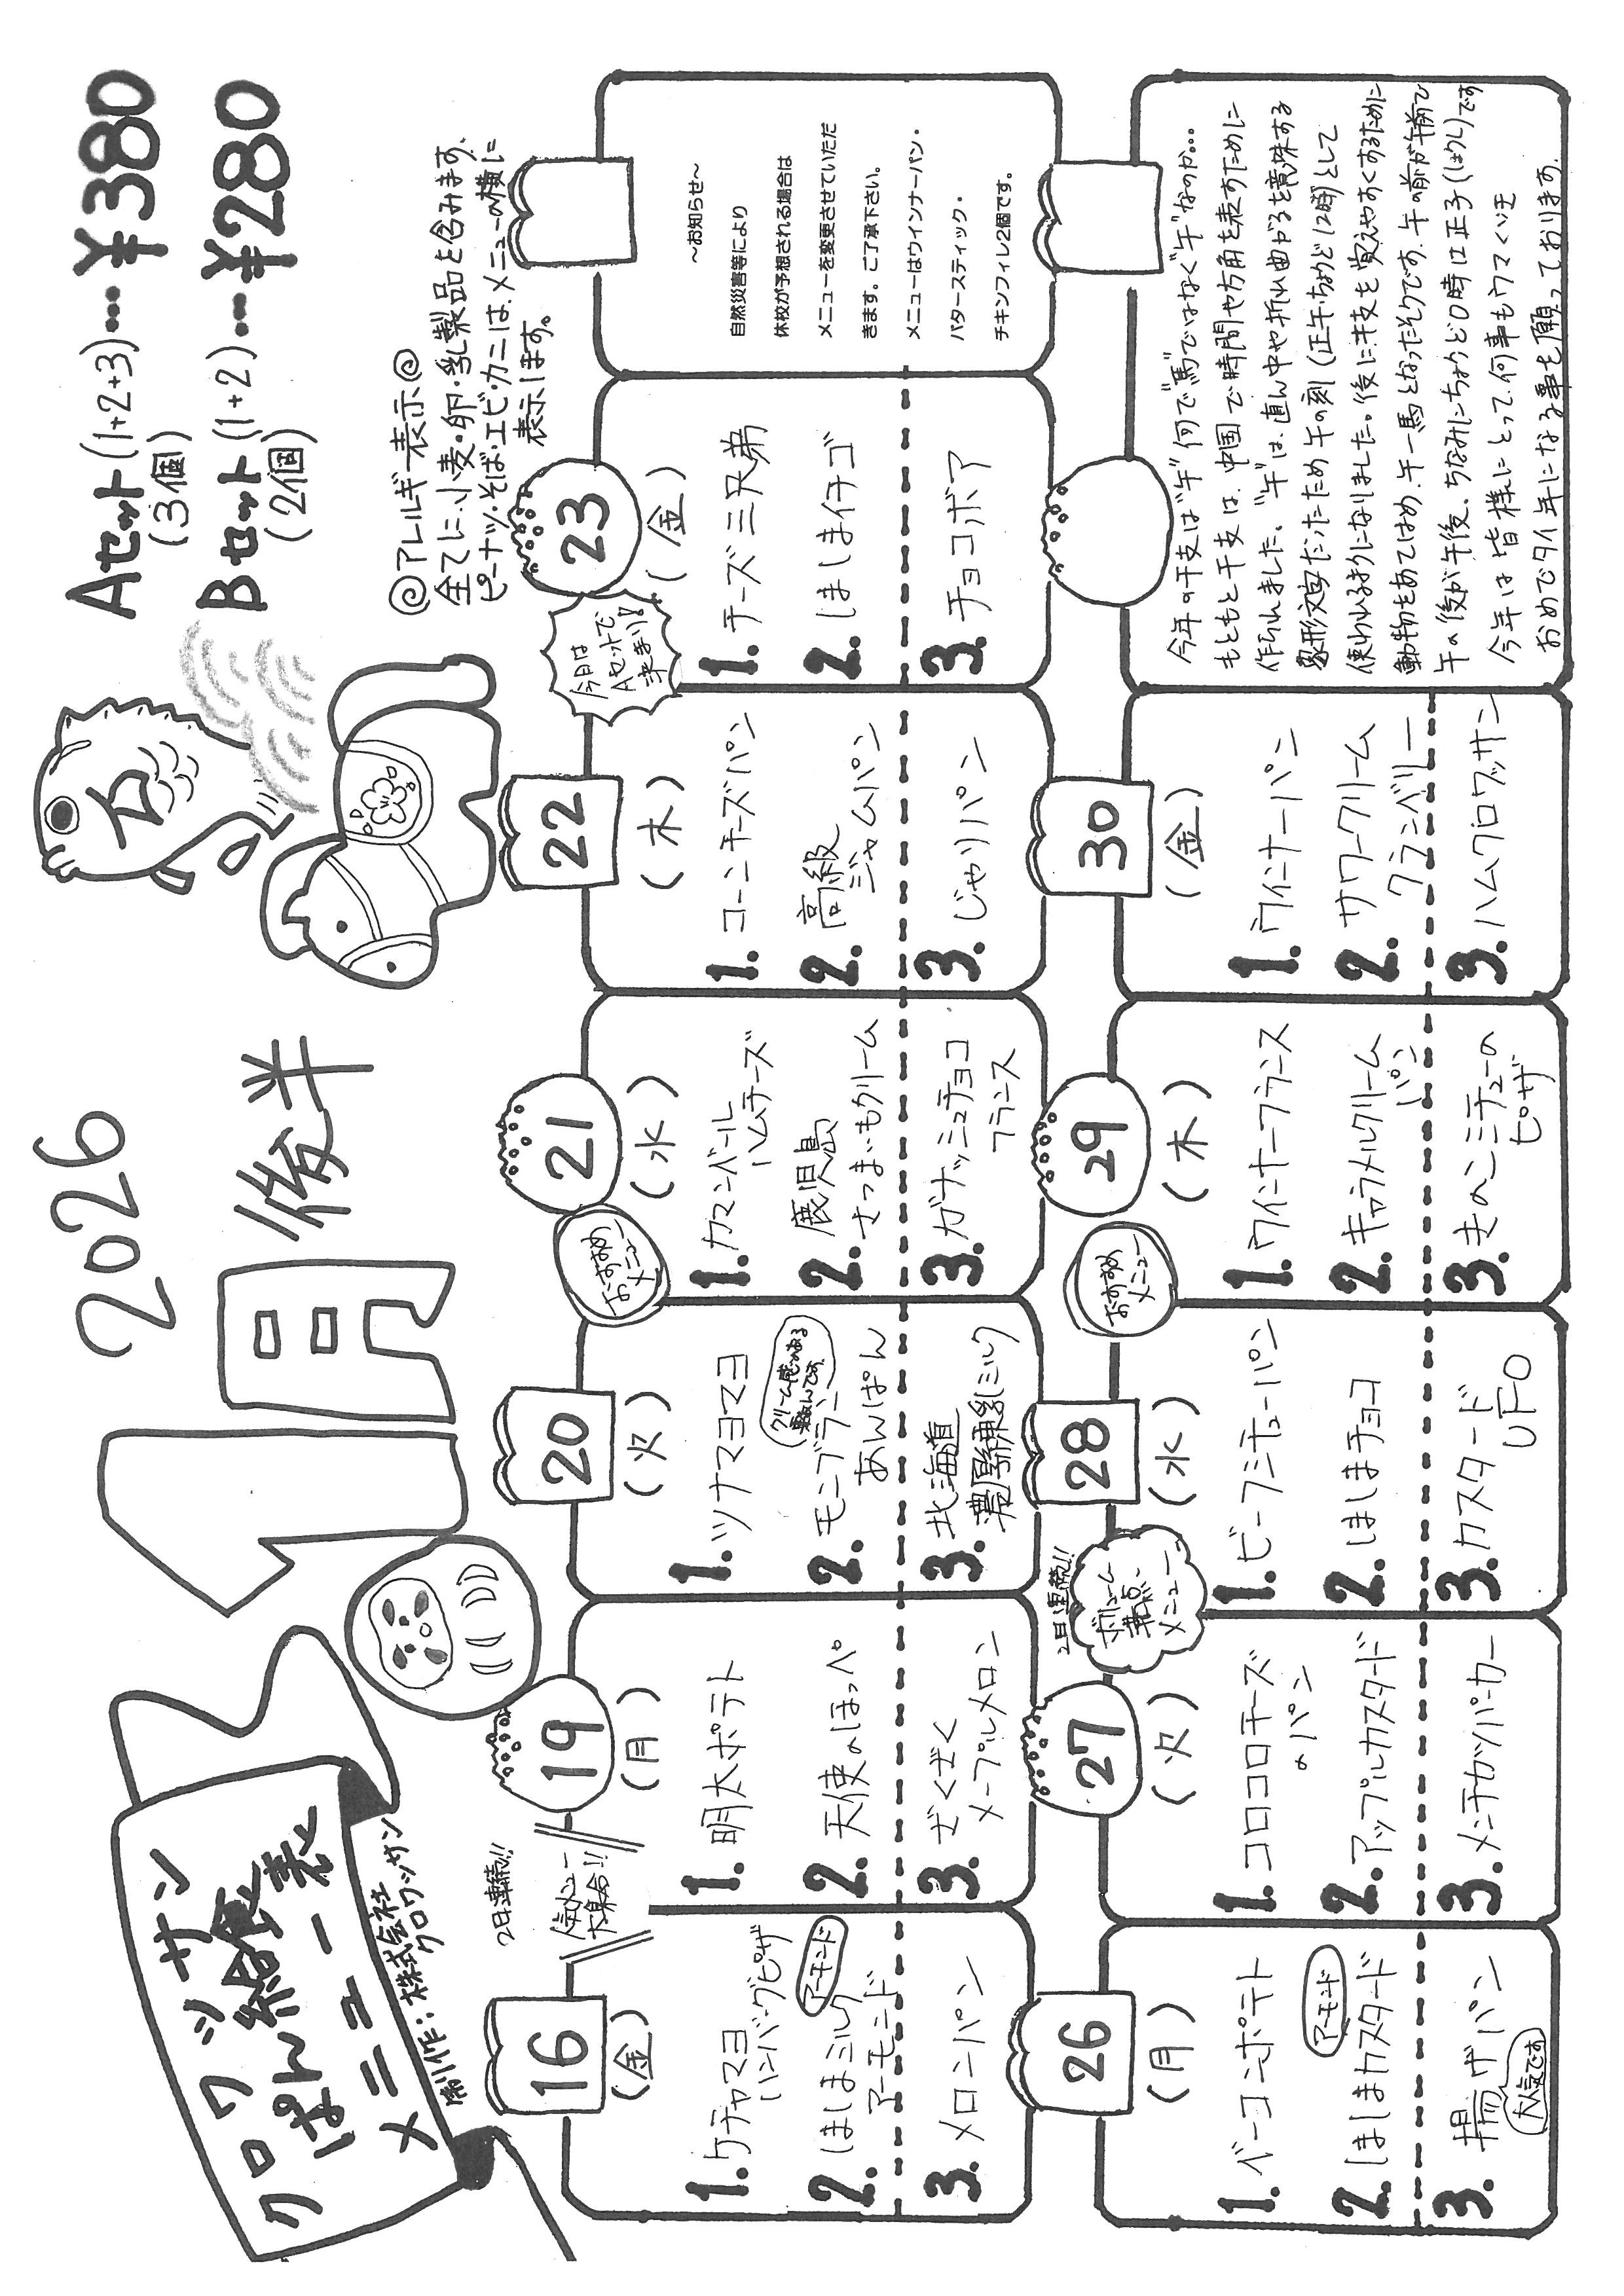 クロワッサン
ぱん給食
メニュー表
制作：株式会社
クロワッサン
2026
1月
後半
Aセット(1+2+3)…¥380
(3個)
Bセット(1+2)…¥280
(2個)
◎アレルギー表示◎
全てに小麦・卵・乳製品を含みます。
ピーナッツ・そば・エビ・カニは、メニューの横に
表示します。
16
(金)
1.ケチャマヨ
ハンバーグピザ
アーモンド
2.ほしまミルク
アーモンド
3.メロンパン
2日連続!!
人気メニュー
大集合!!
19
(月)
1.明太ポテト
2.天使のほっぺ
3.ざくざく
メープルメロン
20
(火)
1.ツナマヨマヨ
クリーム感のある
2.モンブラン
あんぱん
3.北海道
濃厚練乳ミルク
おすすめ
メニュー
21
(水)
1.カマンベール
ハムチーズ
2.鹿児島
さつまいもクリーム
3.ガナッシュチョコ
フランス
22
(木)
1.コーンチーズパン
2.高級
ジャムパン
3.じゃりパン
今日は
Aセットで
決まり!
23
(金)
1.チーズ三兄弟
2.ほしまイチゴ
3.チョコボア
～お知らせ～
自然災害等により
休校が予想される場合は
メニューを変更させていただ
きます。ご了承下さい。
メニューはウインナーパン・
バタースティック・
チキンフィレ2個です。
26
(月)
1.ベーコンポテト
アーモンド
2.ほしまカスタード
3.揚げパン
大人気です
27
(火)
1.コロコロチーズ
のパン
2.アップルカスタード
3.メンチカツバーガー
2日連続!!
ボリューム
満点
メニュー
28
(水)
1.ビーフシチューパン
2.ほしまチョコ
3.カスタード
UFO
おすすめ
メニュー
29
(木)
1.ウインナーフランス
2.キャラメルクリーム
パン
3.きのこシチューの
ピザ
30
(金)
1.ウインナーパン
2.サワークリーム
クランベリー
3.ハムクロワッサン
今年の干支は“午”何で“馬”ではなく“午”なのか...
もともと干支は、中国で時間や方角を表すために
作られました。“午”は、真ん中や折れ曲がるを意味する
象形文字だったため午の刻(正午・ちょうど12時)として
使われるようになりました。後に干支を覚えやすくするために
動物をあてはめ、午＝馬となったそうです。午の前が午前で
午の後が午後、ちなみにちょうど0時は正子(しょうし)です
今年は皆様にとって、何事もウマくいき
おめでタイ年になる事を願っております。